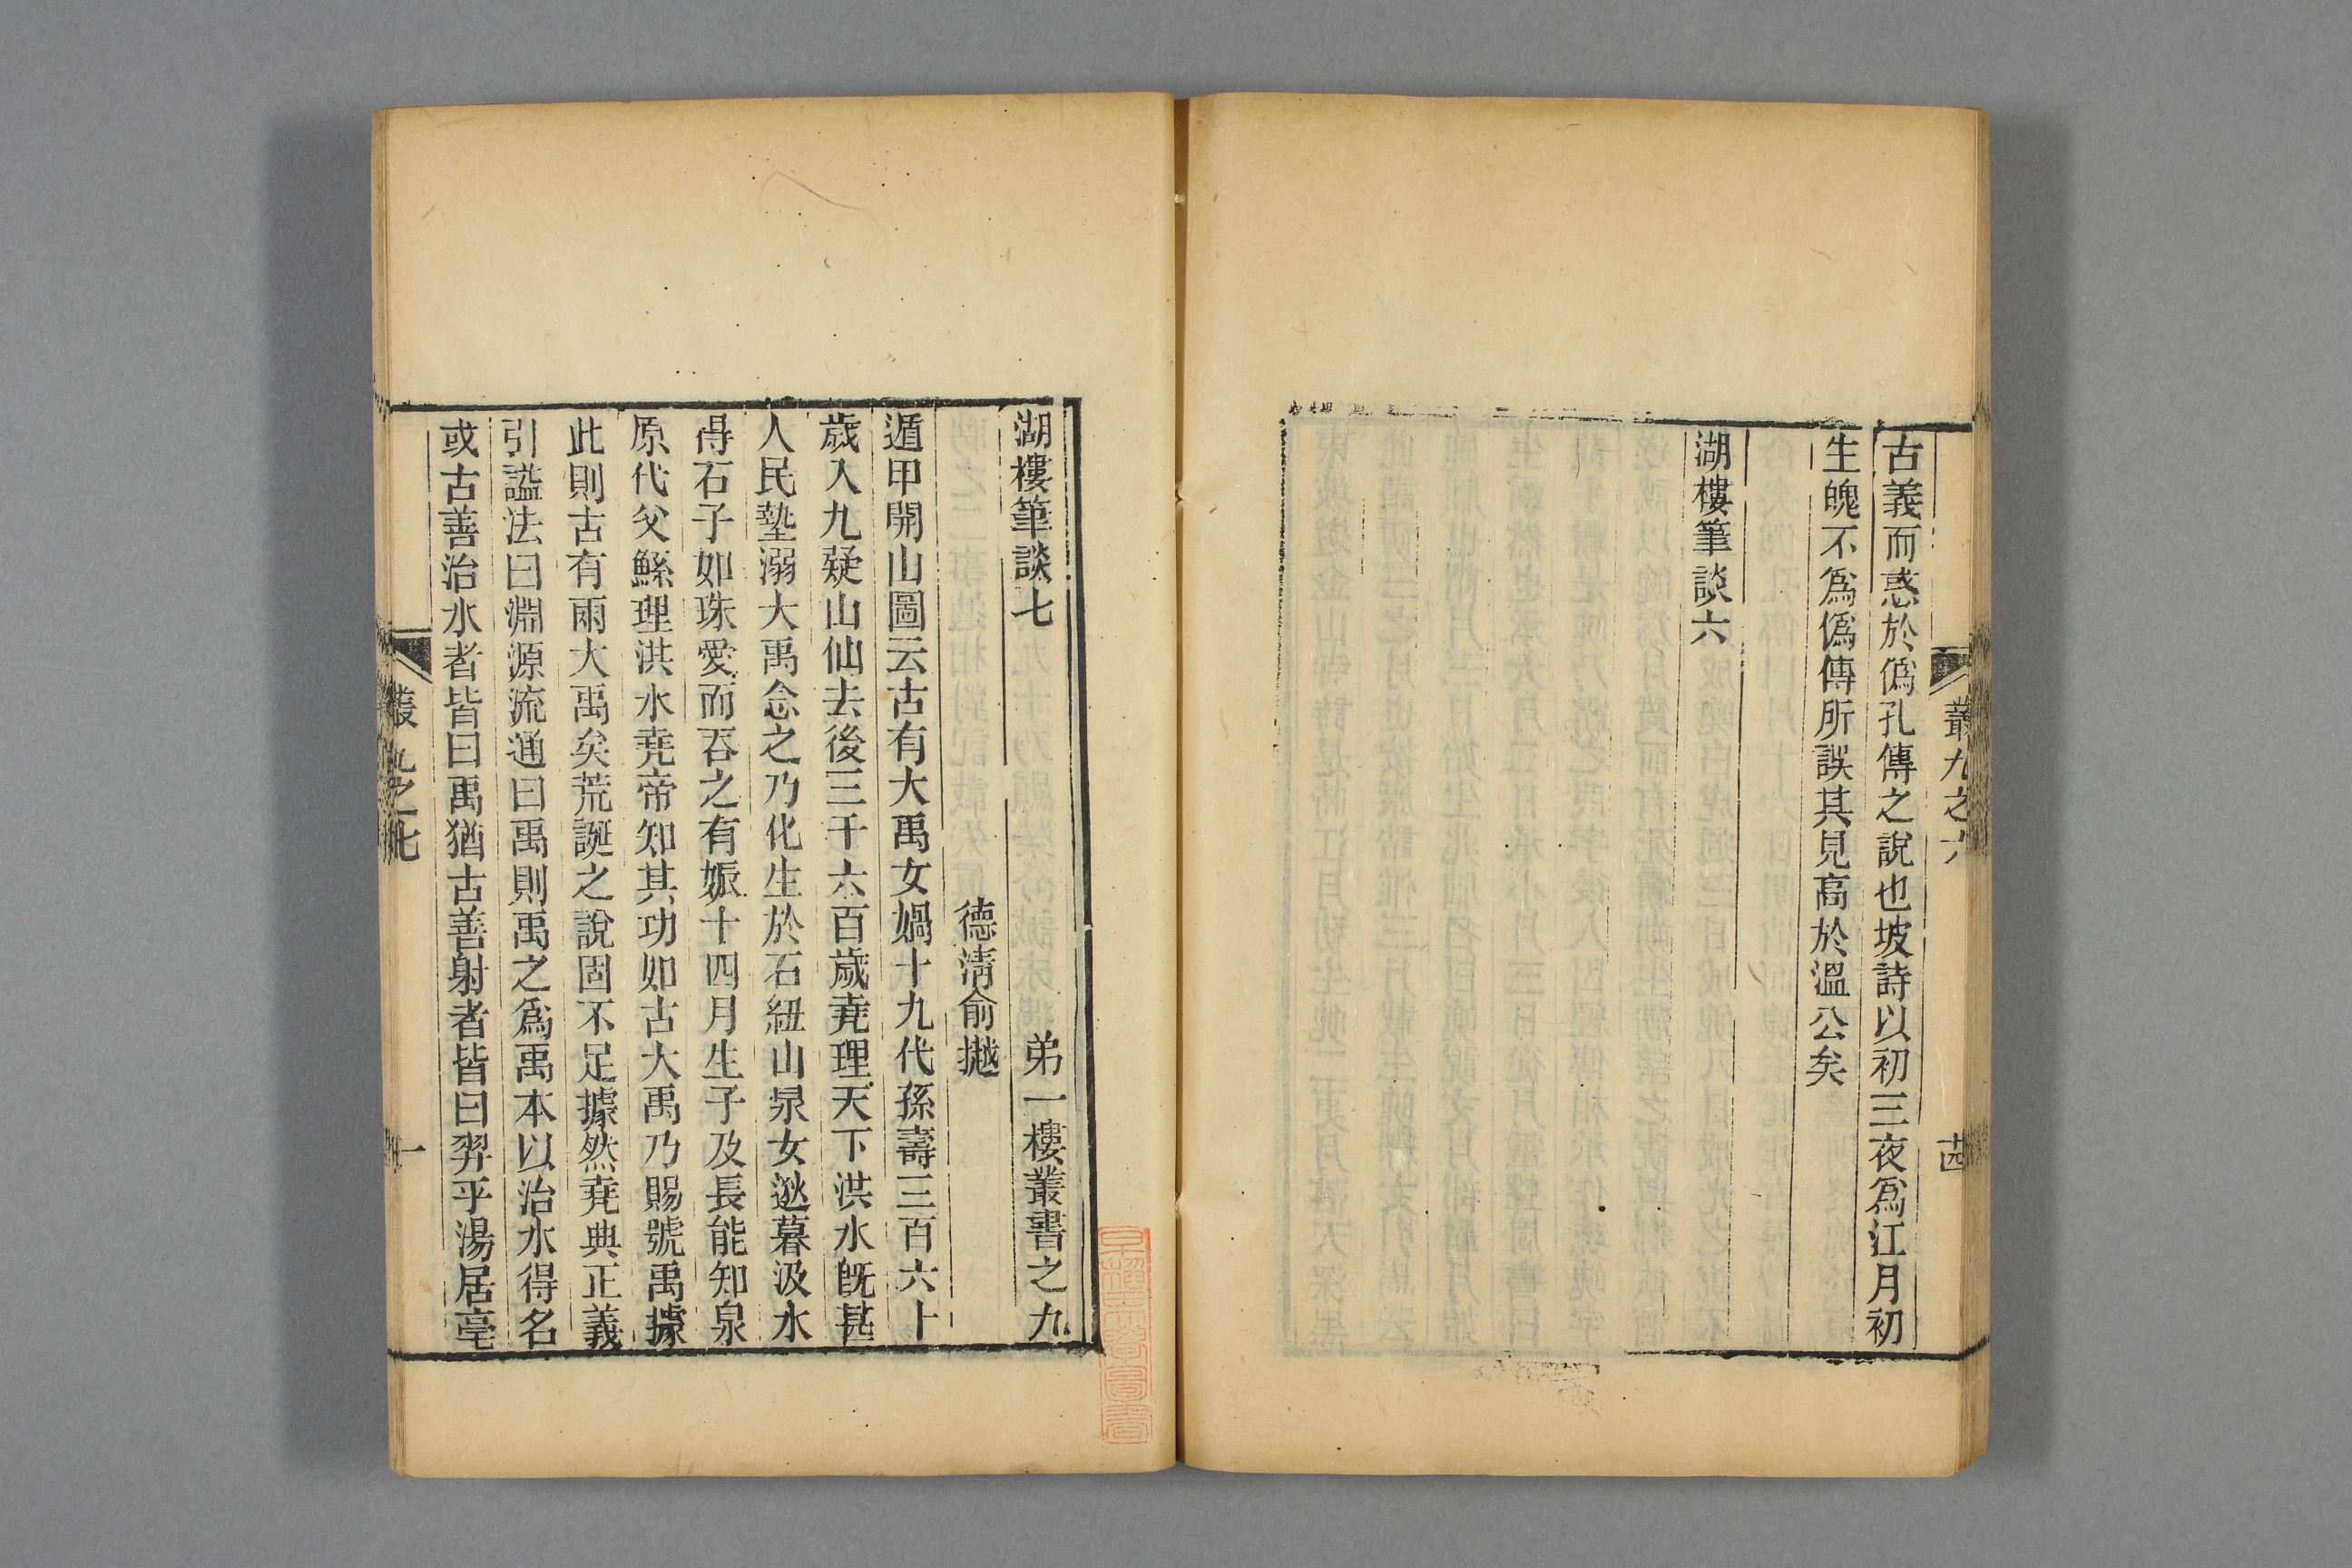 叢九之六
古義而惑於僞孔傳之說也坡詩以初三夜爲江月初
生魄不爲僞傳所誤其見高於溫公矣
湖樓筆談六
湖樓筆談七　弟一樓叢書之九
德淸俞樾
遁甲開山圖云古有大禹女媧十九代孫壽三百六十
歲入九疑山仙去後三千六百歲堯理天下洪水旣甚
人民墊溺大禹念之乃化生於石紐山泉女逖暮汲水
得石子如珠愛而吞之有娠十四月生子及長能知泉
原代父鯀理洪水堯帝知其功如古大禹乃賜號禹據
此則古有兩大禹矣荒誕之說固不足據然堯典正義
引謚法曰淵源流通曰禹則禹之爲禹本以治水得名
或古善治水者皆曰禹猶古善射者皆曰羿乎湯居亳
叢九之七　一